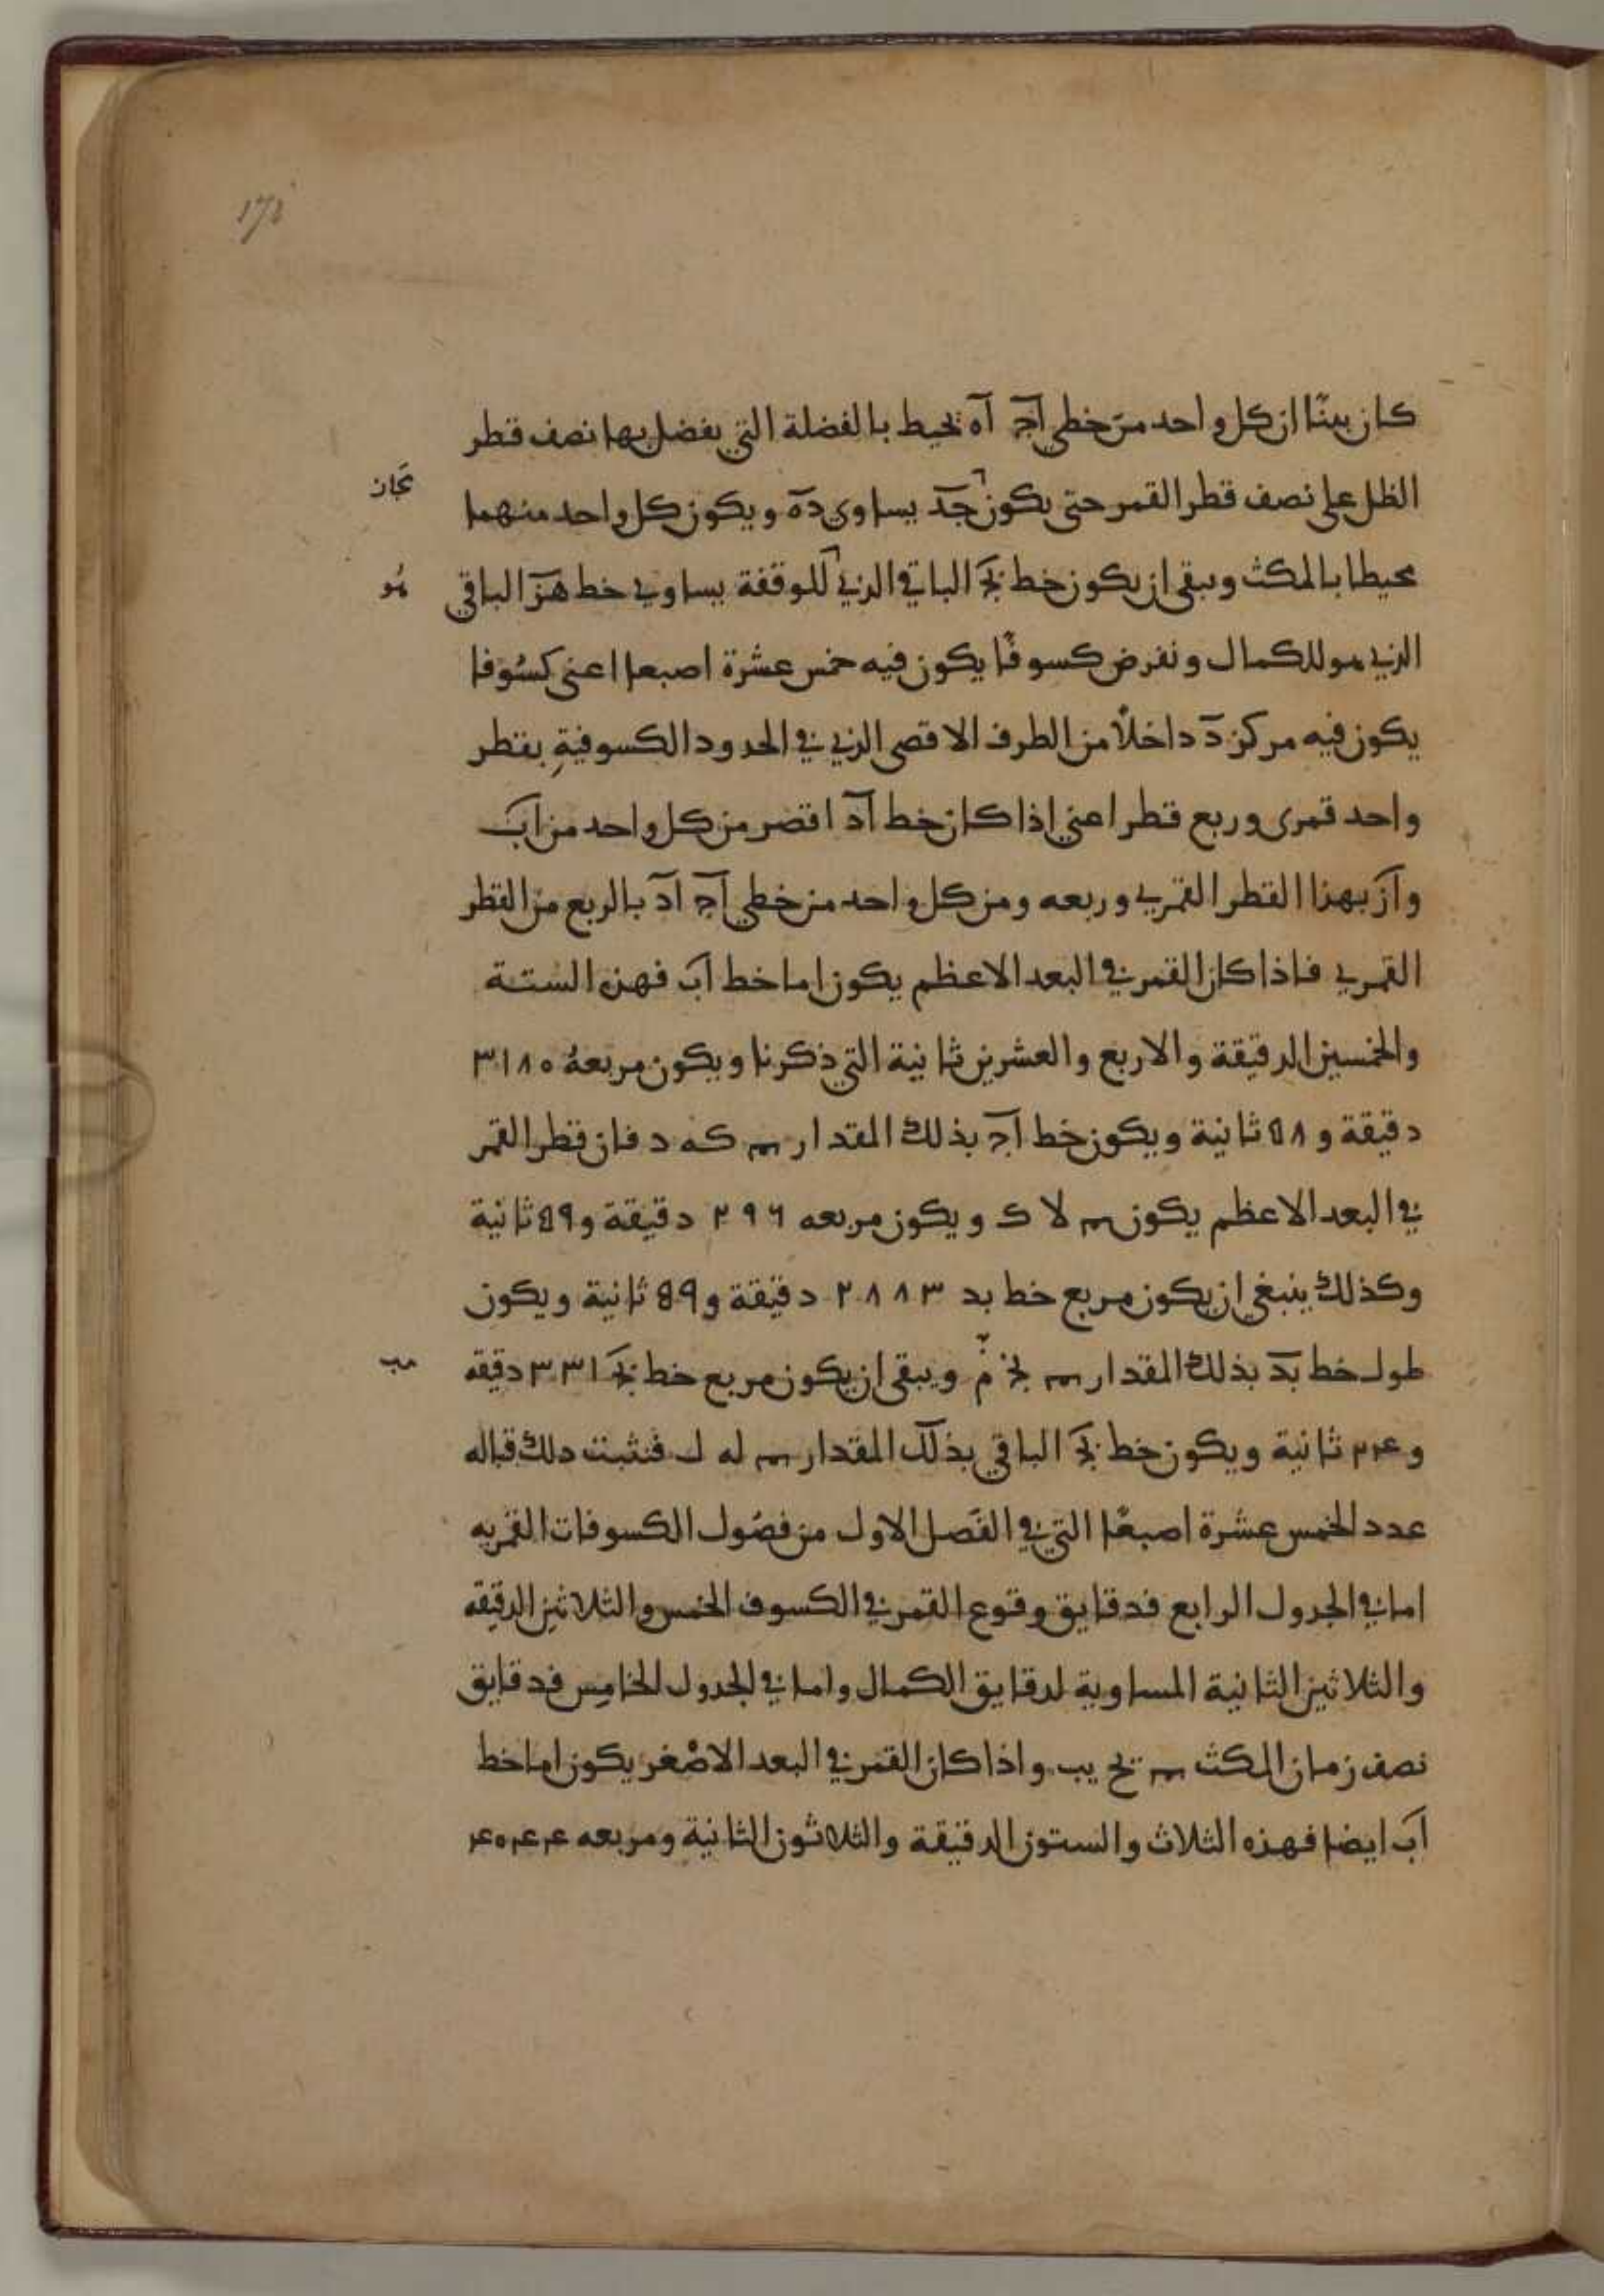 171
كان بينًا ان كل واحد من خطي اج اه يحيط بالفضلة التي يفضل بها نصف قطر
الظل على نصف قطر القمر حتى يكون جد يساوى ده ويكون كل واحد منهما
محيطا بالمكث ويبقى ان يكون خط بج الباقي الذي للوقفة يساوي خط هز الباقي
هو
الذي هو للكمال ونفرض كسوفًا يكون فيه خمس عشرة اصبعا اعنى كسُوفا
يكون فيه مركز د داخلًا من الطرف الاقصى الذي في الحدود الكسوفيةِ بقطر
واحد قمرى وربع قطر اعني اذا كان خط اد اقصر من كل واحد من اب
واز بهذا القطر القمري وربعه ومن كل واحد من خطي اج اد بالربع من القطر
القمري فاذا كان القمر في البعد الاعظم يكون اما خط اب فهذه الستة
والخمسين الدقيقة والاربع والعشرين ثانية التي ذكرنا ويكون مربعهُ ٣١٨٥
دقيقة و ٥٨ ثانية ويكون خط اج بذلك المقدار كه د فان قطر القمر
في البعد الاعظم يكون لا ك ويكون مربعه ٢٩٦ دقيقة و٥٩ ثانية
وكذلك ينبغي ان يكون مربع خط بد ٢٨٨٣ دقيقة و٥٩ ثانية ويكون
طول خط بد بذلك المقدار نج م ويبقى ان يكون مربع خط بج ٣٣١ دقيقه
مب
و٢٤ ثانية ويكون خط بج الباقي بذلك المقدار له ل فنثبت دلك قباله
عدد الخمس عشرة اصبعًا التي في الفَصل الاول من فصُول الكسوفات القمريه
اما في الجدول الرابع فدقايق وقوع القمر في الكسوف الخمس والثلاثين الدقيقه
والثلاثين الثانية المساوية لدقايق الكمال واما في الجدول الخامِس فدقايق
نصف زمان المكث يح يب واذا كان القمر في البعد الاصْغر يكون اما خط
اب ايضا فهذه الثلاث والستون الدقيقة والثلاثون الثانية ومربعه